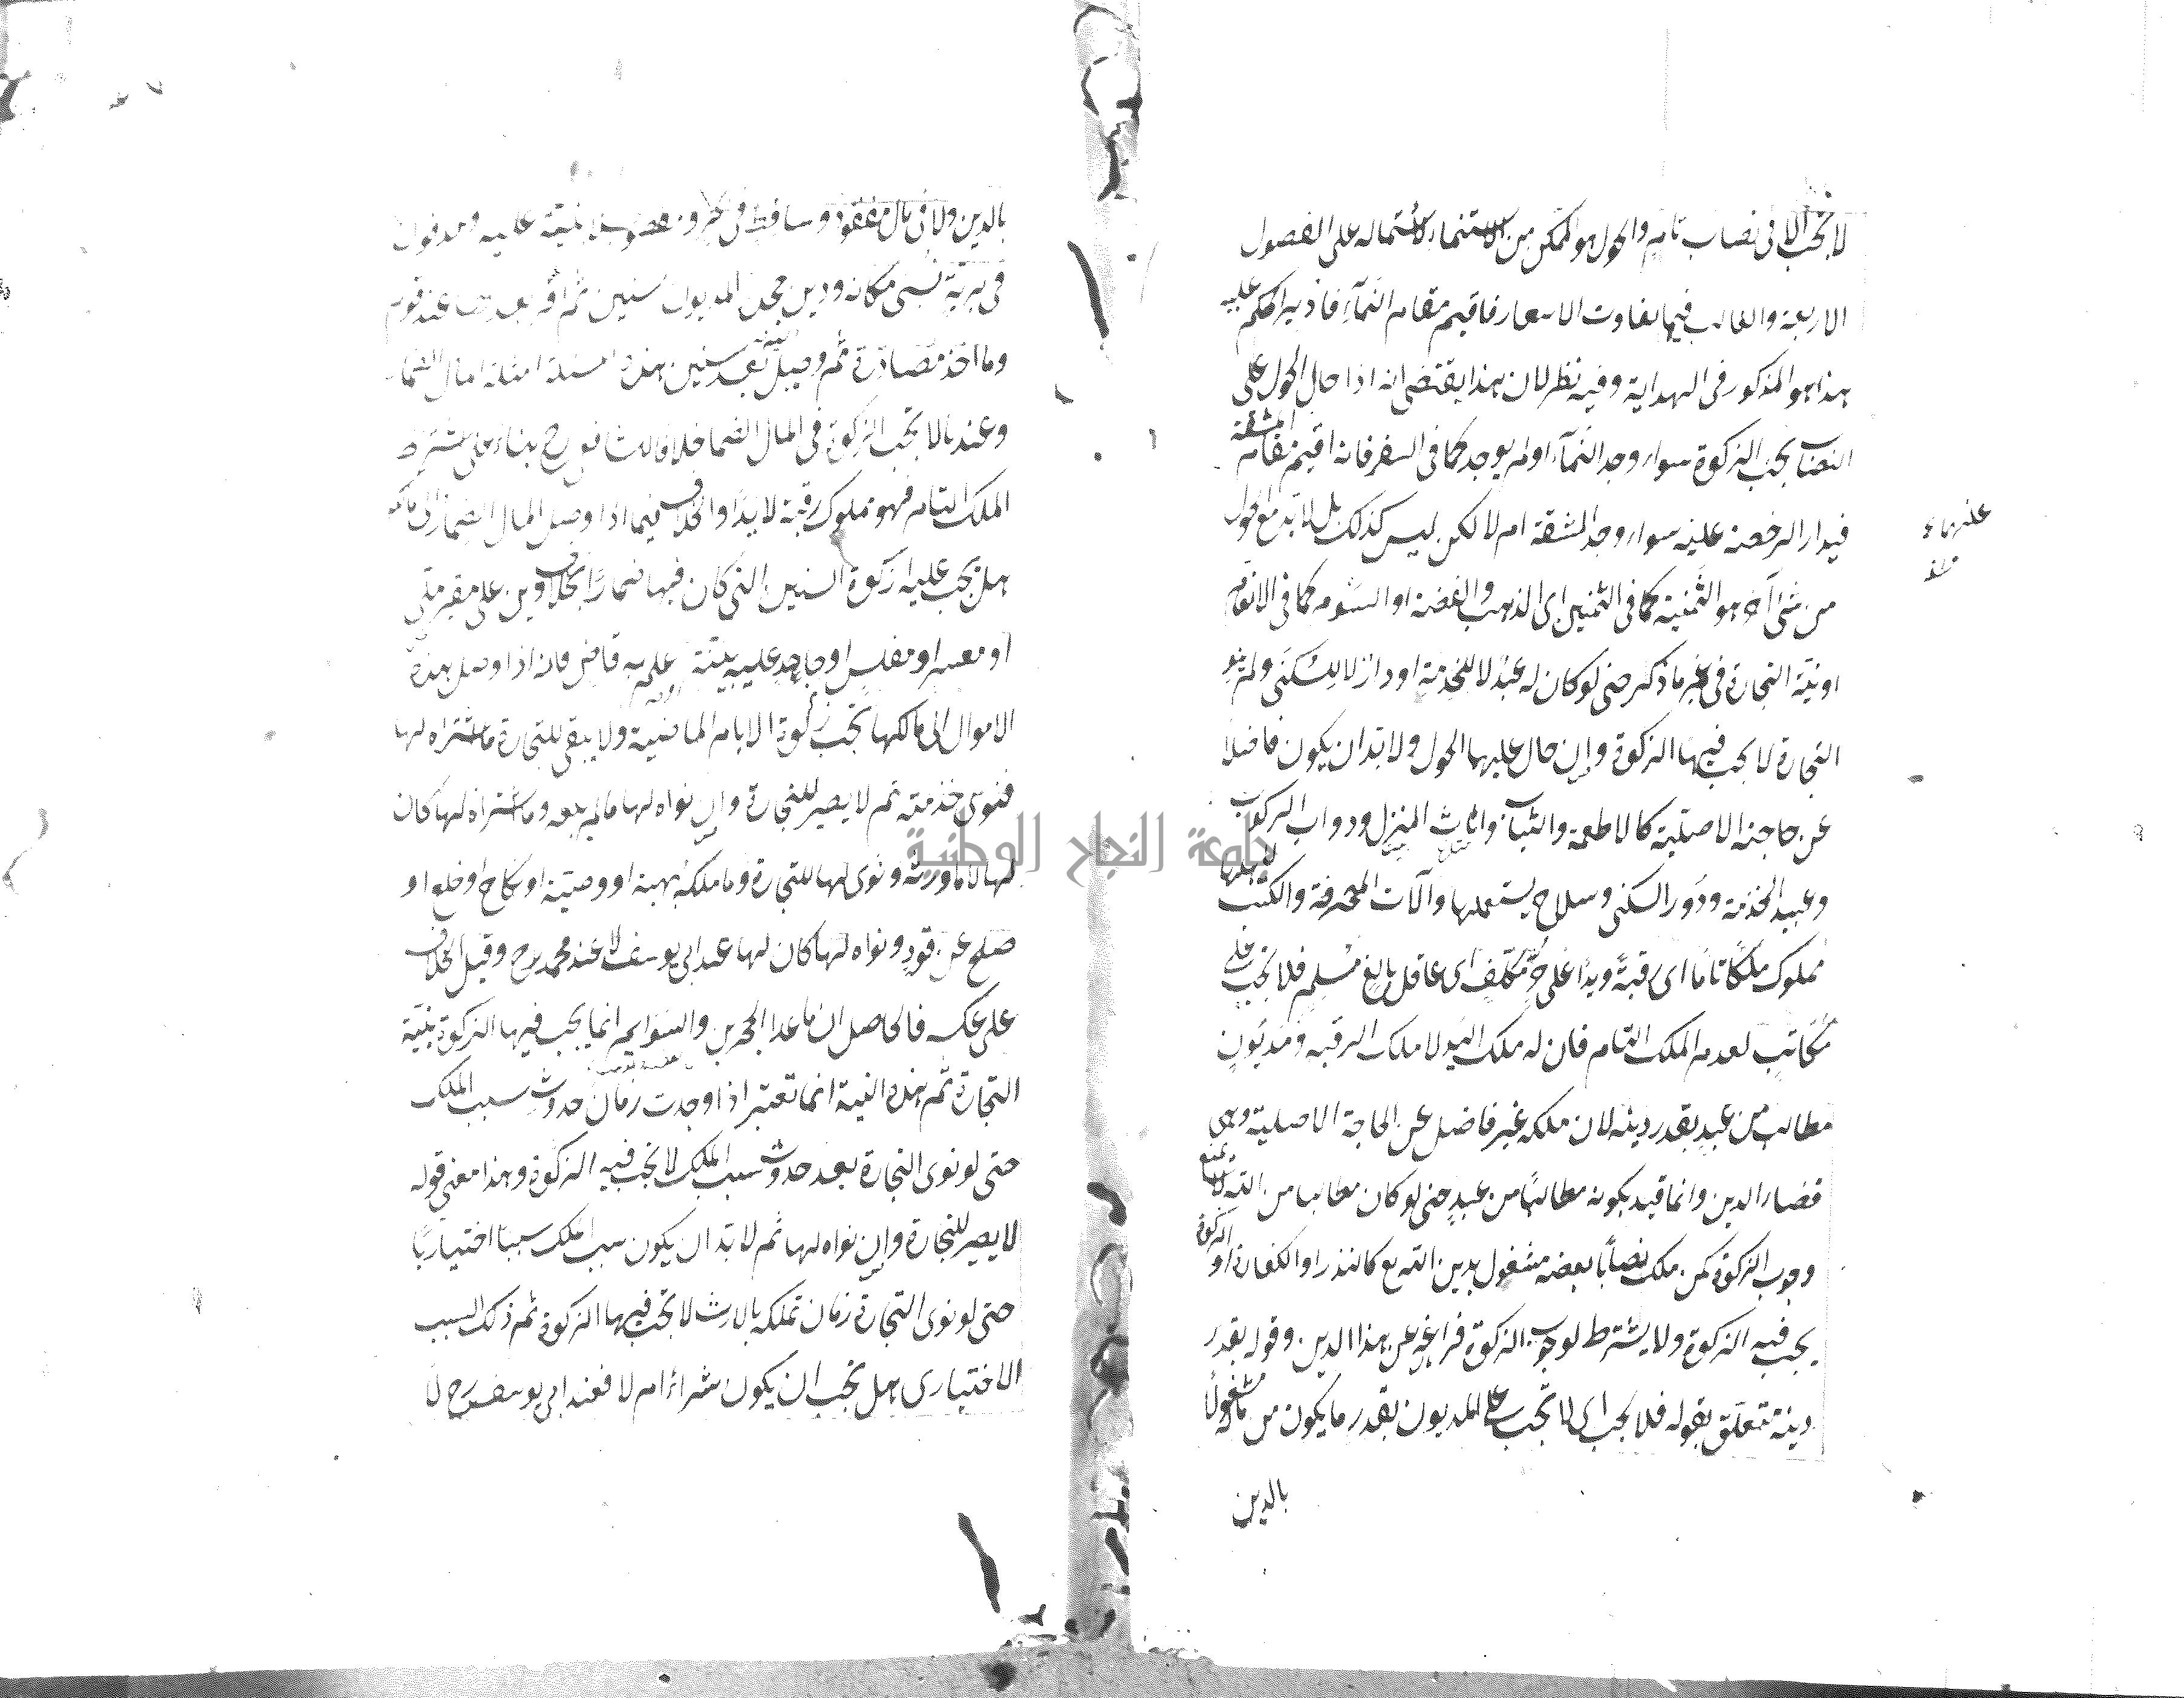 لا تجب الا فى نصاب تام والحول هو الممكن من الاستنماء لاشتماله على الفصول
الاربعة والغالب فيها تفاوت الاسعار فاقيم مقام النمآء فادير الحكم عليه
هذا هو المذكور فى الهداية وفيه نظر لان هذا يقتضى انه اذا حال الحول على
النصاب تجب الزكوة سواء وجد النمآء اولم يوجد كما فى السفر فانه اقيم مقام المشقة
فيدار الرخصة عليه سواء وجد المشقة ام لا لكن ليس كذلك بل لا بد مع الحول
من شئ آخر هو الثمنية كما فى الثمنين اى الذهب والفضة او السوم كما فى الانعام
او نية التجارة فى غير ما ذكر حتى لو كان له عبد لا للخدمة او دار لا للسكنى ولم ينو
التجارة لا تجب فيها الزكوة وان حال عليها الحول ولا بد ان يكون فاضلا
عن حاجته الاصلية كالاطعمة والثياب واثاث المنزل ودواب الركوب
وعبيد الخدمة ودور السكنى وسلاح يستعملها وآلات المحترفة والكتب لاهلها
مملوك ملكا تاما اى رقبة ويدا على حر مكلف اى عاقل بالغ مسلم فلا تجب على
مكاتب لعدم الملك التام فان له ملك اليد لا ملك الرقبة ومديون
مطالب من عبد بقدر دينه لان ملكه غير فاضل عن الحاجة الاصلية وهى
قضاء الدين وانما قيد بكونه مطالبا من عبد حتى لو كان مطالبا من الله لا يمنع
وجوب الزكوة كمن ملك نصابا بعضه مشغول بدين الله تع كالنذر او الكفارة او الزكوة
يجب فيه الزكوة ولا يشترط لوجوب الزكوة فراغه عن هذا الدين وقوله بقدر
دينه متعلق بقوله فلا تجب اى لا تجب على المديون بقدر ما يكون من ماله مشغولا
بالدين
بالدين ولا فى مال مفقود وساقط فى بحر ومغصوب لا بينة عليه ومدفون
فى برية نسى مكانه ودين جحد المديون سنين ثم اقر بعدها عند قوم
وما اخذ مصادرة ثم وصل اليه بعد سنين هذه امثلة المال الضمار
وعندنا لا تجب الزكوة فى المال الضمار خلافا للشافعى رح بناء على اشتراط
الملك التام فهو مملوك رقبة لا يدا والخلاف فيما اذا وصل المال الضمار الى مالكه
هل تجب عليه زكوة السنين التى كان فيها ضمارا بخلاف دين على مقر ملى
او معسر او مفلس او جاحد عليه بينة او علم به قاض فانه اذا وصل هذه
الاموال الى مالكها تجب زكوة الايام الماضية ولا يبقى للتجارة ما اشتراه لها
فنوى خدمته ثم لا يصير للتجارة وان نواه لها مالم يبعه وما اشتراه لها كان
لها لا ما ورثه ونوى لها للتجارة وما ملكه بهبة او وصية او نكاح او خلع او
صلح عن قود ونواه لها كان لها عند ابى يوسف لا عند محمد رح وقيل الخلاف
على عكسه فالحاصل ان ما عدا الحجرين والسوايم انما يجب فيها الزكوة بنية
التجارة ثم هذه النية انما تعتبر اذا وجدت زمان حدوث سبب الملك
حتى لو نوى التجارة بعد حدوث سبب الملك لا تجب فيه الزكوة وهذا معنى قوله
لا يصير للتجارة وان نواه لها ثم لا بد ان يكون سبب الملك سببا اختياريا
حتى لو نوى التجارة زمان تملكه بالارث لا تجب فيها الزكوة ثم ذلك السبب
الاختيارى هل يجب ان يكون شراء ام لا فعند ابى يوسف رح لا
جامعة النجاح الوطنية